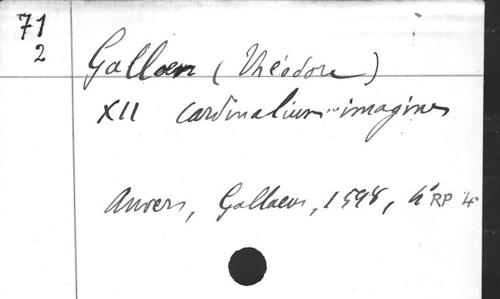 71
2
Gallaeus (Théodore)
XII cardinalium imagines
Anvers, Gallaeus, 1598, 4° RP 4°